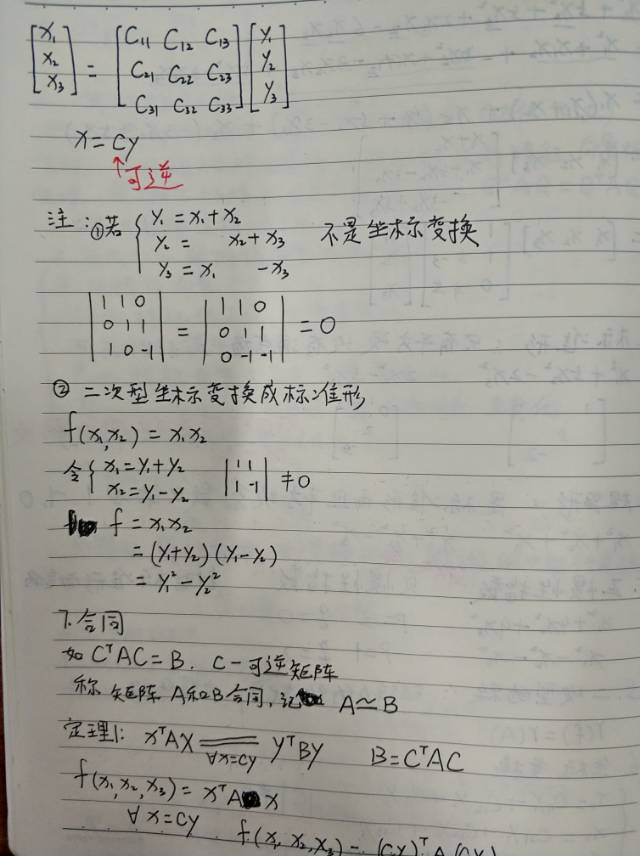 [x₁ x₂ x₃] = [C₁₁ C₁₂ C₁₃; C₂₁ C₂₂ C₂₃; C₃₁ C₃₂ C₃₃] [y₁ y₂ y₃]
x = Cy
↑可逆
注:①若 { y₁ = x₁ + x₂ 不是坐标变换
y₂ = x₂ + x₃
y₃ = x₁ - x₃
|1 1 0; 0 1 1; 1 0 -1| = |1 1 0; 0 1 1; 0 -1 -1| = 0
② 二次型坐标变换成标准形
f(x₁,x₂) = x₁x₂
令 { x₁ = y₁+y₂ |1 1; 1 -1| ≠ 0
x₂ = y₁-y₂
f = x₁x₂
= (y₁+y₂)(y₁-y₂)
= y₁² - y₂²
7.合同
如 CᵀAC = B. C-可逆矩阵
称 矩阵 A和B合同,记 A≃B
定理1: xᵀAx ==== yᵀBy B = CᵀAC
∀x=cy
f(x₁,x₂,x₃) = xᵀA x
∀ x=cy f(x₁,x₂,x₃) = (cy)ᵀA(cy)